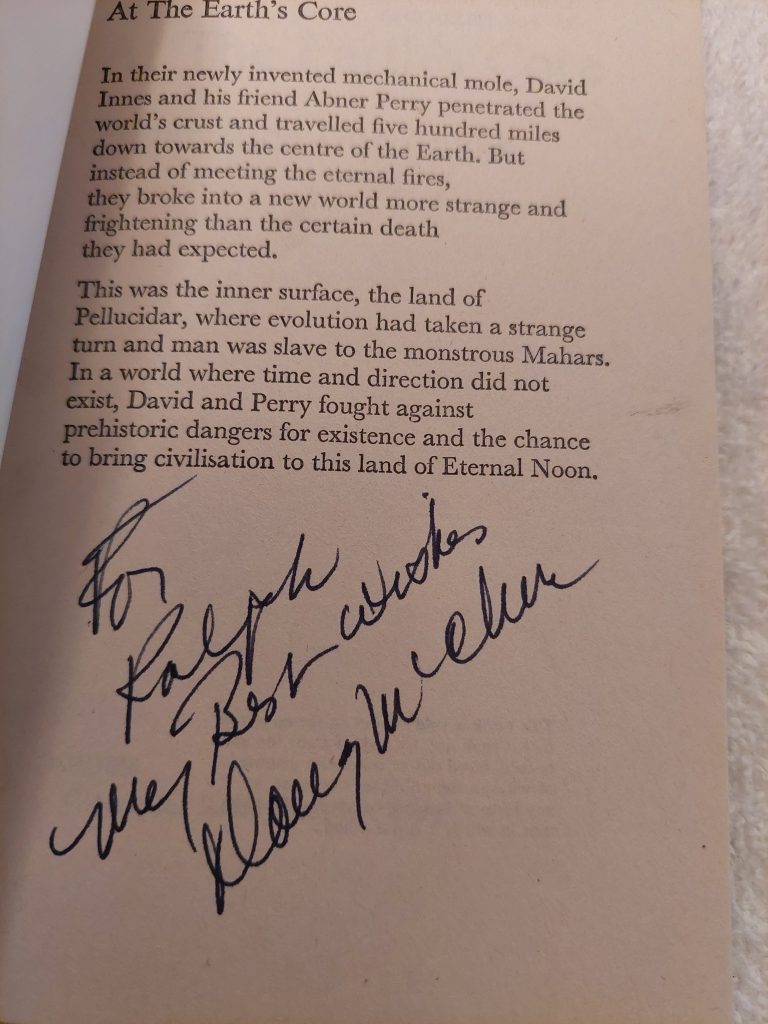 At The Earth's Core
In their newly invented mechanical mole, David
Innes and his friend Abner Perry penetrated the
world's crust and travelled five hundred miles
down towards the centre of the Earth. But
instead of meeting the eternal fires,
they broke into a new world more strange and
frightening than the certain death
they had expected.
This was the inner surface, the land of
Pellucidar, where evolution had taken a strange
turn and man was slave to the monstrous Mahars.
In a world where time and direction did not
exist, David and Perry fought against
prehistoric dangers for existence and the chance
to bring civilisation to this land of Eternal Noon.
For
Ralph
My Best Wishes
Doug McClure